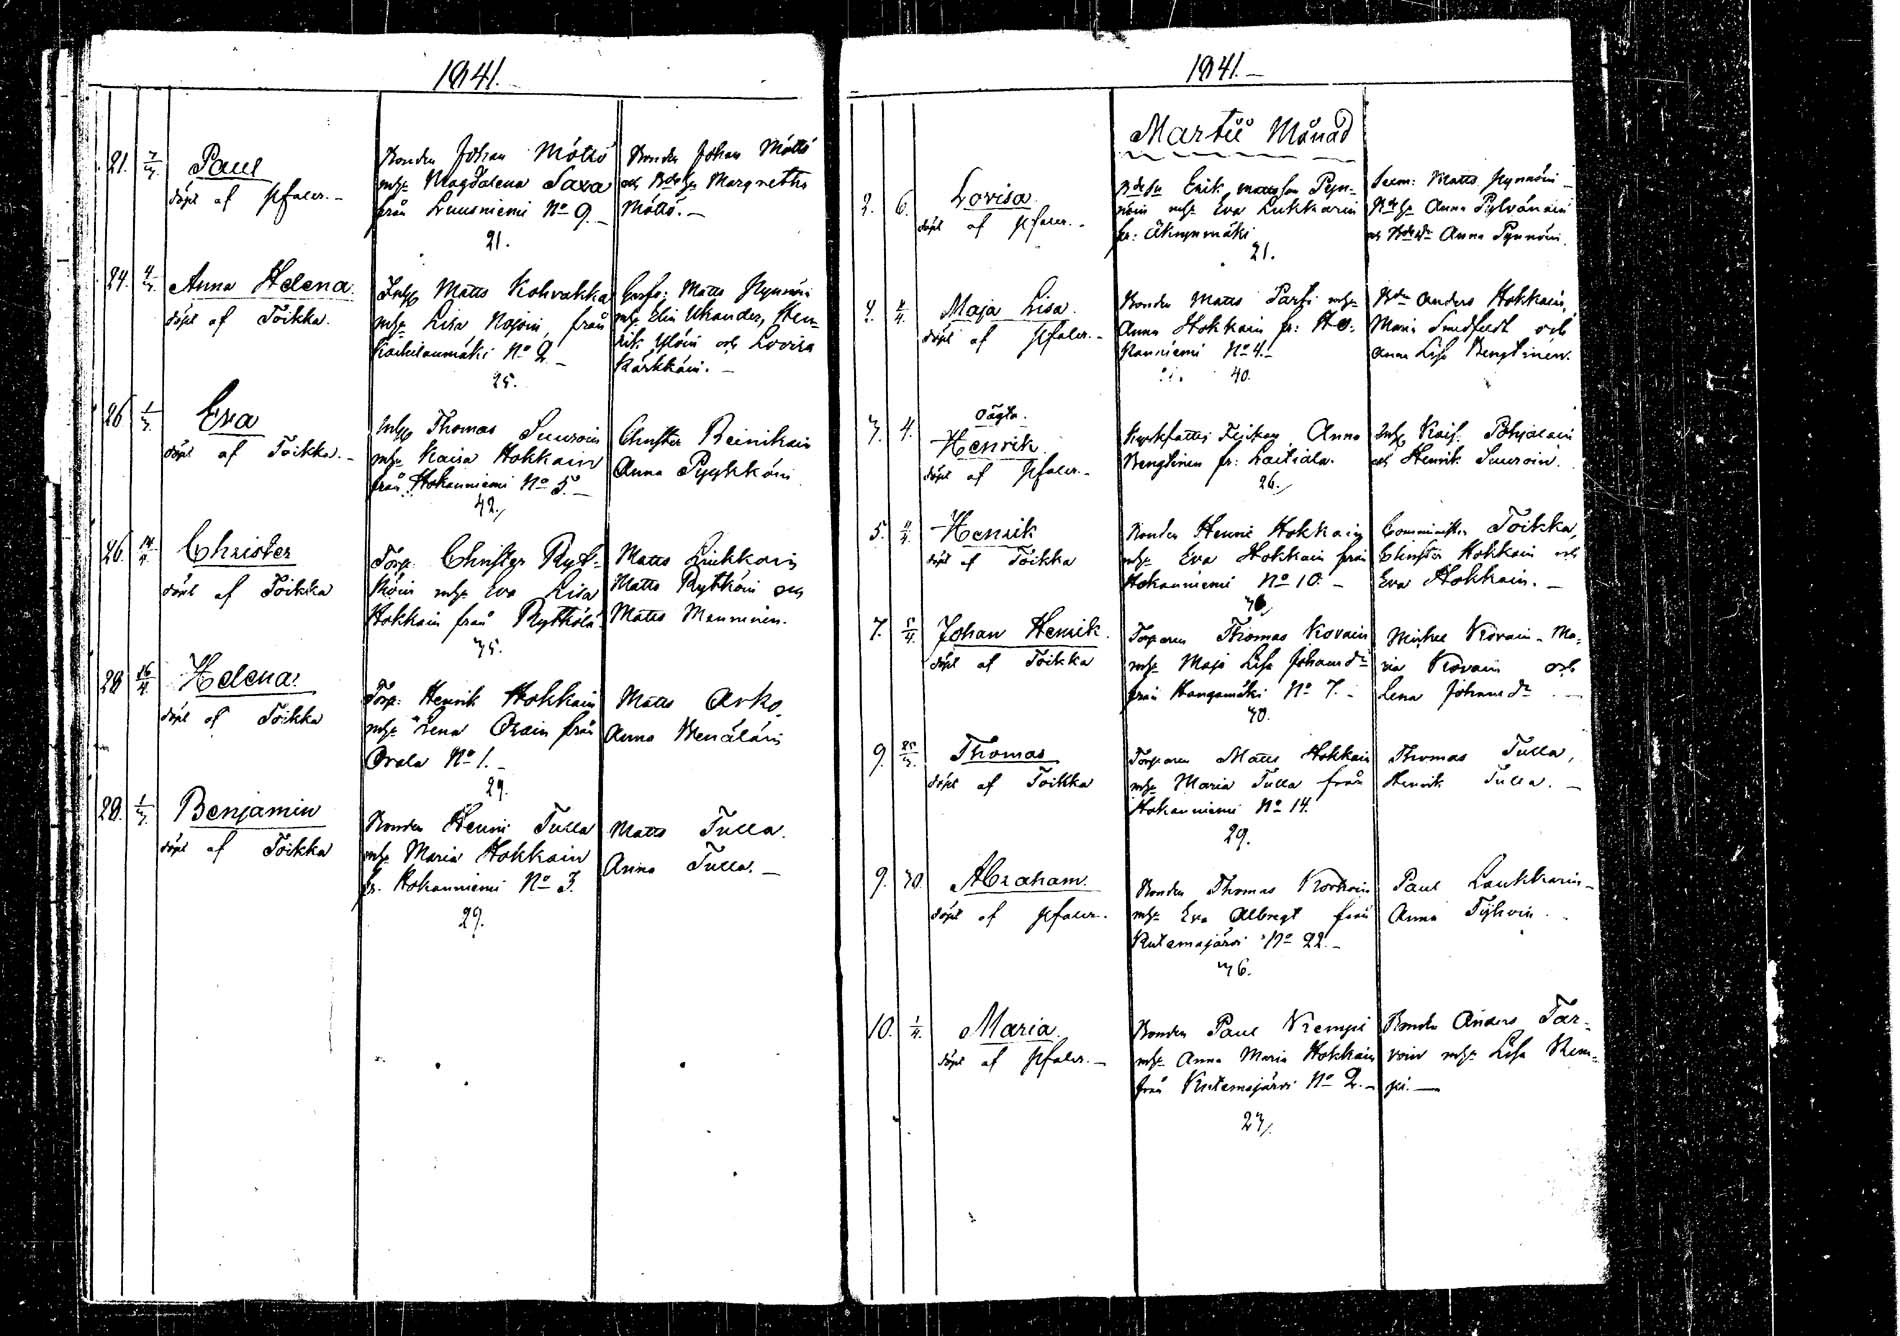 1841.
21. 7/3 Paul
döpt af Pfaler.-
Bonden Johan Möttö
mhu Magdalena Saxa
från Luusniemi No 9.-
21.
Bonden Johan Möttö
och Margretha
Möttö.-
24. 4/3 Anna Helena
döpt af Toikka.
Inhys Matts Kohvakka
mhu Lisa från
No 2.-
25.
Matts Pynnöin
mhu Elin Ukander, Hen-
rik Ylöin och Lovisa
Kärkkäin.-
26 1/3 Eva
döpt af Toikka.-
Inhys Thomas Suuroin
mhu Kaisa Hokkain
från Hokanniemi No 5.-
42.
Christer Reinikain
Anna Pyykköin
26 14/4 Christer
döpt af Toikka
Torp. Christer Ryt-
köin mhu Eva Lisa
Hokkain från Rytkölä
35.
Matts Liukkoin
Matts Rytköin och
Matts Manninen.
28 16/4 Helena.
döpt af Toikka
Torp. Henrik Hokkain
mhu Lena Orain från
Orala No 1.-
29.
Matts Arko.
Anna Venäläin
28. 1/3 Benjamin
döpt af Toikka
Bonden Henric Tulla
mhu Maria Hokkain
fr. Hokanniemi No 3.
29.
Matts Tulla.
Anna Tulla.-
1841.-
Martii Månad
2. 6. Lovisa.
döpt af Pfaler.-
Erik Mattsson Pyn-
nöin mhu Eva Lukkarin
fr:
21.
Matts Pynnöin
Anna Pylvänäin
och Anna Pynnöin.
4/4. Maja Lisa.
döpt af Pfaler.-
Bonden Matts Parti mhu
Anna Hokkain fr: Ho-
kanniemi No 4.-
40.
Anders Hokkain,
Maria Smedfeldt och
Anna Lisa Bengtinen.
3. 4. oägta.
Henrik.
döpt af Pfaler.-
Anna
Bengtinen fr: Laitiala.
26.
Inhys Kaisa Pohjalain
och Henrik Suuroin.
5. 4/4. Henrik
döpt af Toikka
Bonden Henric Hokkain
mhu Eva Hokkain från
Hokanniemi No 10.-
36.
Comminister Toikka,
Christer Hokkain och
Eva Hokkain.-
7. 5/4. Johan Henrik.
döpt af Toikka
Torparen Thomas Kovain
mhu Maja Lisa Johansdr
från Kangamäki No 7.-
30.
Michel Kovain - Ma-
ria Kovain och
Lena Johansdr.-
9. 25/3. Thomas
döpt af Toikka
Torparen Matts Hokkain
mhu Maria Tulla från
Hokanniemi No 14.
29.
Thomas Tulla,
Henrik Tulla.-
9. 30. Abraham.
döpt af Pfaler.-
Bonden Thomas Korhoin
mhu Eva Albregt från
Kutemajärvi No 22.-
36.
Paul Laukkarin-
Anna Tyhoin.
10. 1/4. Maria.
döpt af Pfaler.-
Bonden Paul Kempi
mhu Anna Maria Hokkain
från Kutemajärvi No 2.-
27.
Bonden Anders Tar-
voin mhu Lisa Kem-
pi.-